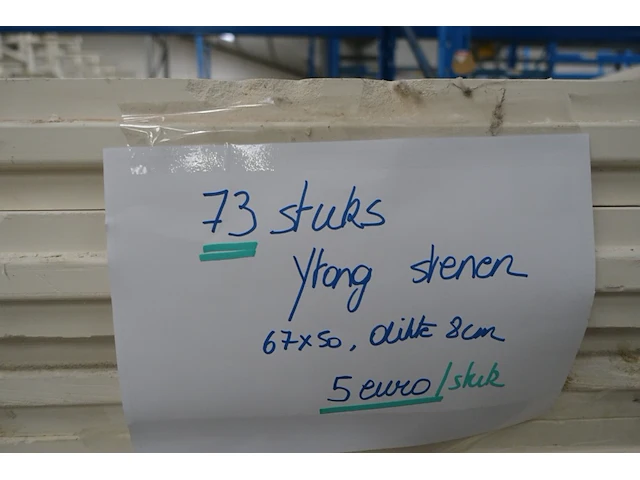 73 stuks
Ytong stenen
67x50, dikte 8cm
5 euro/stuk